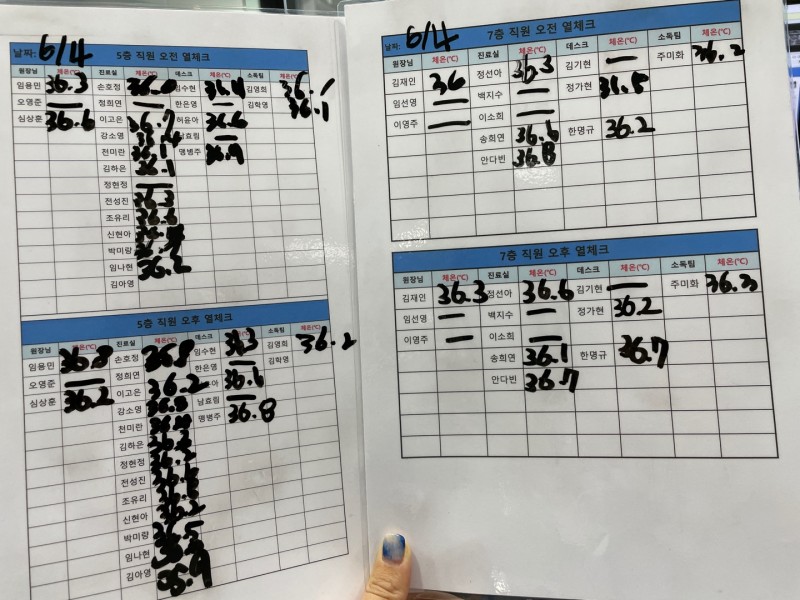 날짜: 6/4 5층 직원 오전 열체크
원장님 체온(℃) 진료실 체온(℃) 데스크 체온(℃) 소독팀 체온(℃)
임용민 36.3 손호정 임수현 36.4 김영희 36.1
오영준 — 정희연 — 한은영 — 김학영 36.1
심상훈 36.6 이고은 36.7 허윤아 36.6
강소영 남효림 —
전미란 36.1 맹병주 36.9
김하은 36.1
정현정 —
전성진 36.3
조유리 36.6
신현아
박미량
임나현 36.2
김아영
5층 직원 오후 열체크
원장님 체온(℃) 진료실 체온(℃) 데스크 체온(℃) 소독팀 체온(℃)
임용민 36.8 손호정 36.8 임수현 36.3 김영희 36.2
오영준 — 정희연 — 한은영 — 김학영
심상훈 36.2 이고은 36.2 36.1
강소영 남효림 —
전미란 맹병주 36.8
김하은
정현정
전성진
조유리
신현아 36.2
박미량 36.5
임나현
김아영
날짜: 6/4 7층 직원 오전 열체크
원장님 체온(℃) 진료실 체온(℃) 데스크 체온(℃) 소독팀 체온(℃)
김재인 36 정선아 36.3 김기현 — 주미화 36.2
임선영 — 백지수 — 정가현
이영주 — 이소희 —
송희연 36.6 한명규 36.2
안다빈 36.8
7층 직원 오후 열체크
원장님 체온(℃) 진료실 체온(℃) 데스크 체온(℃) 소독팀 체온(℃)
김재인 36.3 정선아 36.6 김기현 — 주미화 36.3
임선영 — 백지수 — 정가현 36.2
이영주 — 이소희 —
송희연 36.1 한명규 36.7
안다빈 36.7